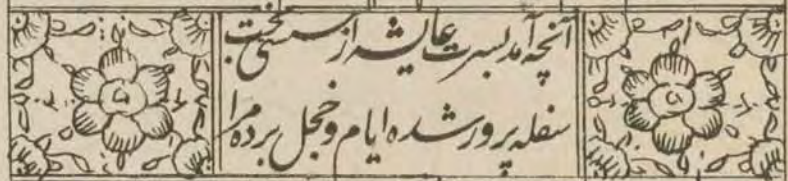 آنچه آمد بسرت عایشه از سستی بخت
سفله پرور شده ایام و خجل برده مرا